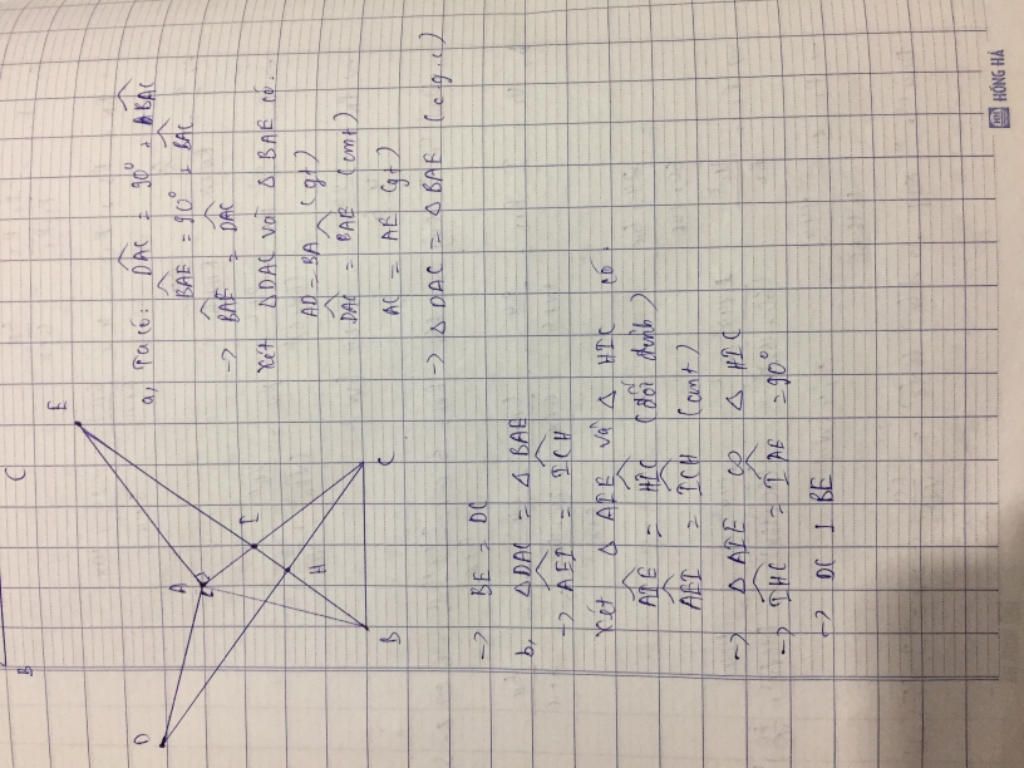 B C
D A E
I
H
B C
a, Ta có: DAC = 90° + BAC
BAE = 90° + BAC
-> BAE = DAC
Xét ΔDAC và ΔBAE có.
AD = BA (gt)
DAC = BAE (cmt)
AC = AE (gt)
-> ΔDAC = ΔBAE (c.g.c)
-> BE = DC
b, ΔDAC = ΔBAE
-> AEI = ICH
Xét ΔAIE và ΔHIC có.
AIE = HIC (đối đỉnh)
AEI = ICH (cmt)
-> ΔAIE ∽ ΔHIC
-> IHC = IAE = 90°
-> DC ⊥ BE
HH HỒNG HÀ